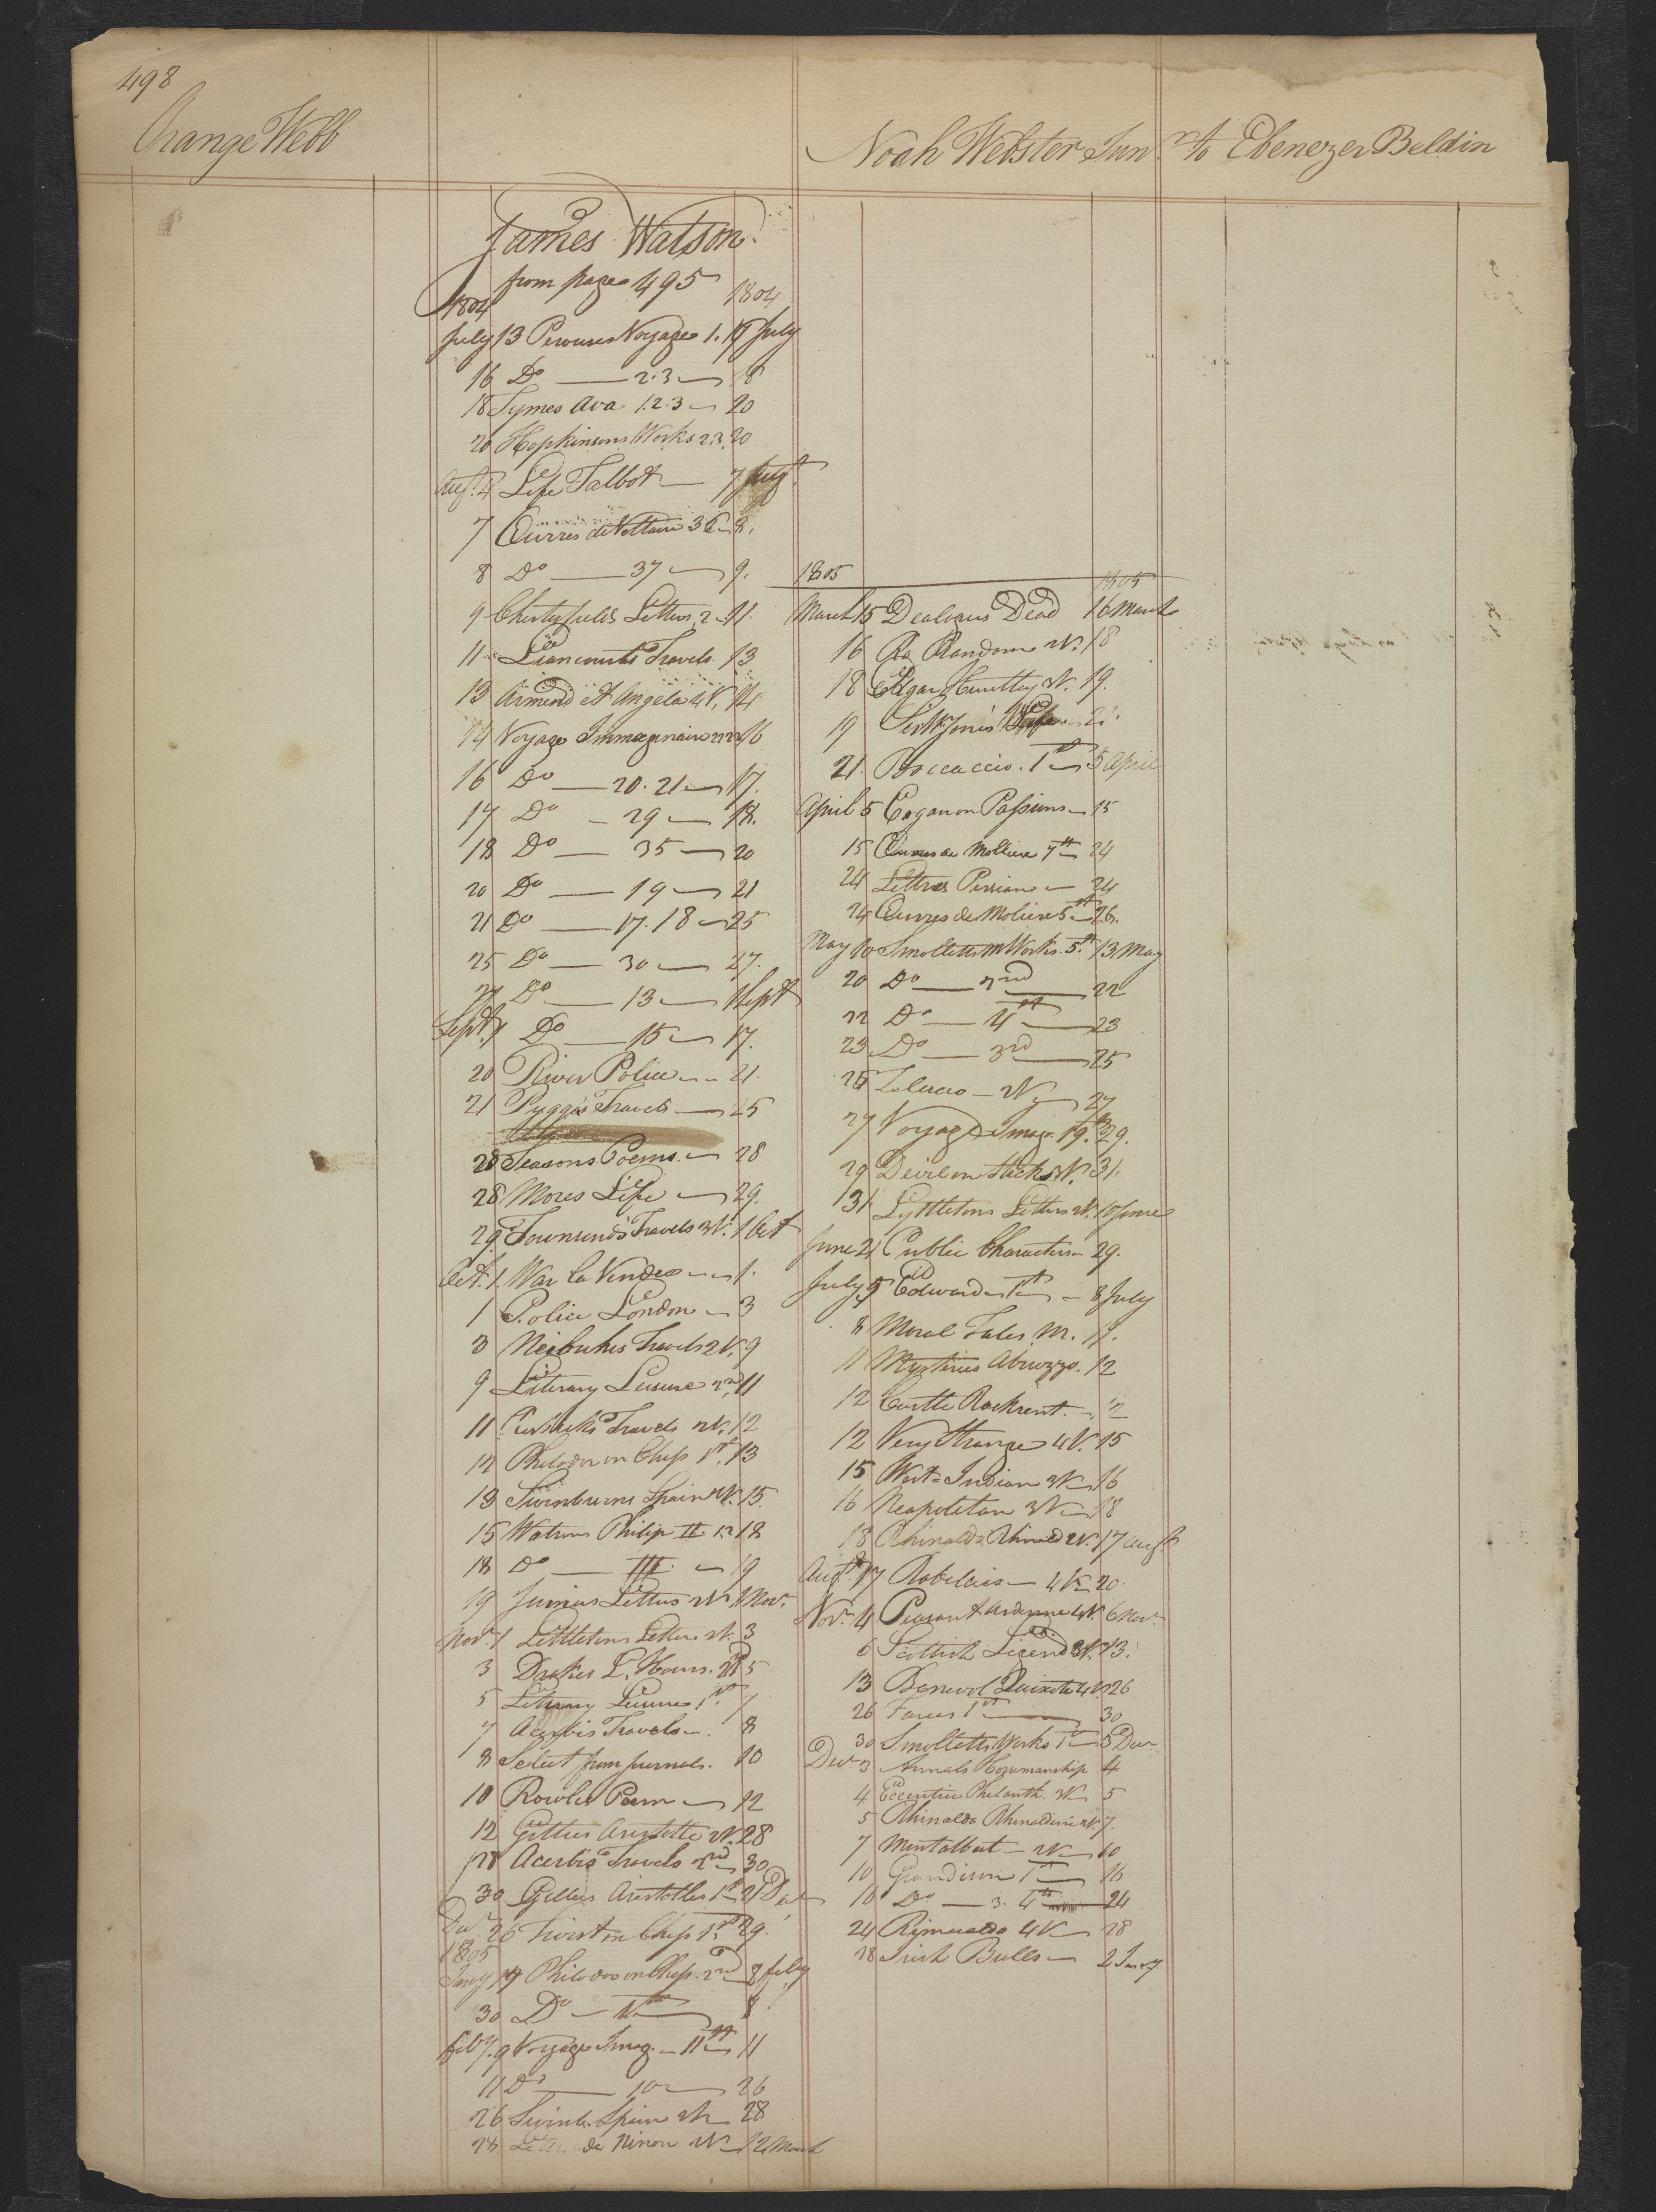 498
Orange Webb
Noah Webster Junr to Ebenezer Beldin
James Watson
from page 495
1804 1804
July 13 Perouses Voyages 1. 17 July
16 Do — 2.3 — 18
18 Symes Ava 1.2.3 — 20
20 Hopkinsons Works 2.3. 20
Augt. 4 Life Talbot — 7 Augt.
7 Œuvres de Voltaire 36 — 8.
8 Do — 37 — 9.
9 Chesterfields Letters 2 — 11.
11 Liancourts Travels. 13
13 Armand et Angela 4V. 14
14 Voyage Immaginaire 16
16 Do — 20. 21 — 17.
17 Do — 29 — 18.
18 Do — 35 — 20
20 Do — 19 — 21
21 Do — 17. 18 — 25
25 Do — 30 — 27.
27 Do — 13 — 1 Sept
Sept. 1 Do — 15 — 17.
20 River Police — 21.
21 Pagges Travels — 25
28 Seasons Poems. — 28
28 Mores Life — 29.
29 Townsends Travels 3V. 1 Oct
Oct. 1. War La Vendee — 1.
1 Police London — 3
3 Neibuhrs Travels 2V. 9
9 Literary Leisure 2nd 11
11 Travels 2V. 12
12 Philodor on Chess 1st. 13
13 Swinburns Spain 2V. 15.
15 Watsons Philip II 1.2 18
18 Do — III — 19
19 Junius Letters 2V 1 Nov.
Novr. 1 Littletons Letters 2V. 3
3 Drakes L. Hours. 2d 5
5 Literary Leisure 1st. 7
7 Acerbis Travels — 8
8 Select from journals. 10
10 Rowles Poem — 12
12 Gillies Aristotle 2V. 28
28 Acerbis Travels 2nd — 30
30 Gillies Aristotles 1st 21 Dec
Decr 26 Twist on Chess 1st 29.
1805
Jany 17 Philodor on Chess. 2nd 8 feby
30 Do — 1st — 8
feby. 9 Voyage Imag. — 11th 11
11 Do — 10 — 26
26 Swinb. Spain 2V — 28
28 de Ninon 2V — 12 March
1805 1805
March 15 Dealogues Dead 16 March
16 Ro Random 2V. 18
18 Edgar Huntley 3V. 19.
19 Sir Wm Jones 21.
21. Boccaccio. 1st — 5 April
April 5 Cogan on Passions — 15
15 Œuvres de Molliere 7th 24
24 Lettres Persians — 24
24 Œuvres de Moliere 5th — 26.
May 10 Smolletts M Works. 5th 13 May
20 Do — 2nd — 22
22 Do — 4th — 23
23 Do — 3rd — 25
25 Zeluco — 2V — 27
27 Voyage Imag. 19th 29.
29 Devil on Sticks 2V. 31.
31. Lyttletons Letters 2V. 10 June
June 21 Public Characters — 29.
July 5 Edward 1st — 8 July
8 Moral Tales 11.
11 Mysteries Abruzzo. 12
12 Castle Rackrent. — 12
12 Very Strange 4V. 15
15 West-Indian 3V — 16
16 Neapolitan 3V — 18
18 Rhinaldo Rhinald 2V. 17 Augt
Augt. 17 Rabelais — 4V — 20.
Novr. 4 Peasant Ardenne 4V. 6 Novr
6 Scottish Legend 3V. 13.
13 Benevol Quixote 4V 26
26 Farces 1st — 30
30 Smolletts Works 1st — 3 Decr
Decr 3 Annals Horsemanship 4
4 Eccentric Philanth. 3V. 5
5 Rhinaldo Rhinaldini 2V. 7.
7 Montalbert — 2V — 10
10 Grandison 1st — 16
16 Do — 3. 4th — 24
24 Rimualdo 4V — 28
28 Irish Bulls — 2 Jany